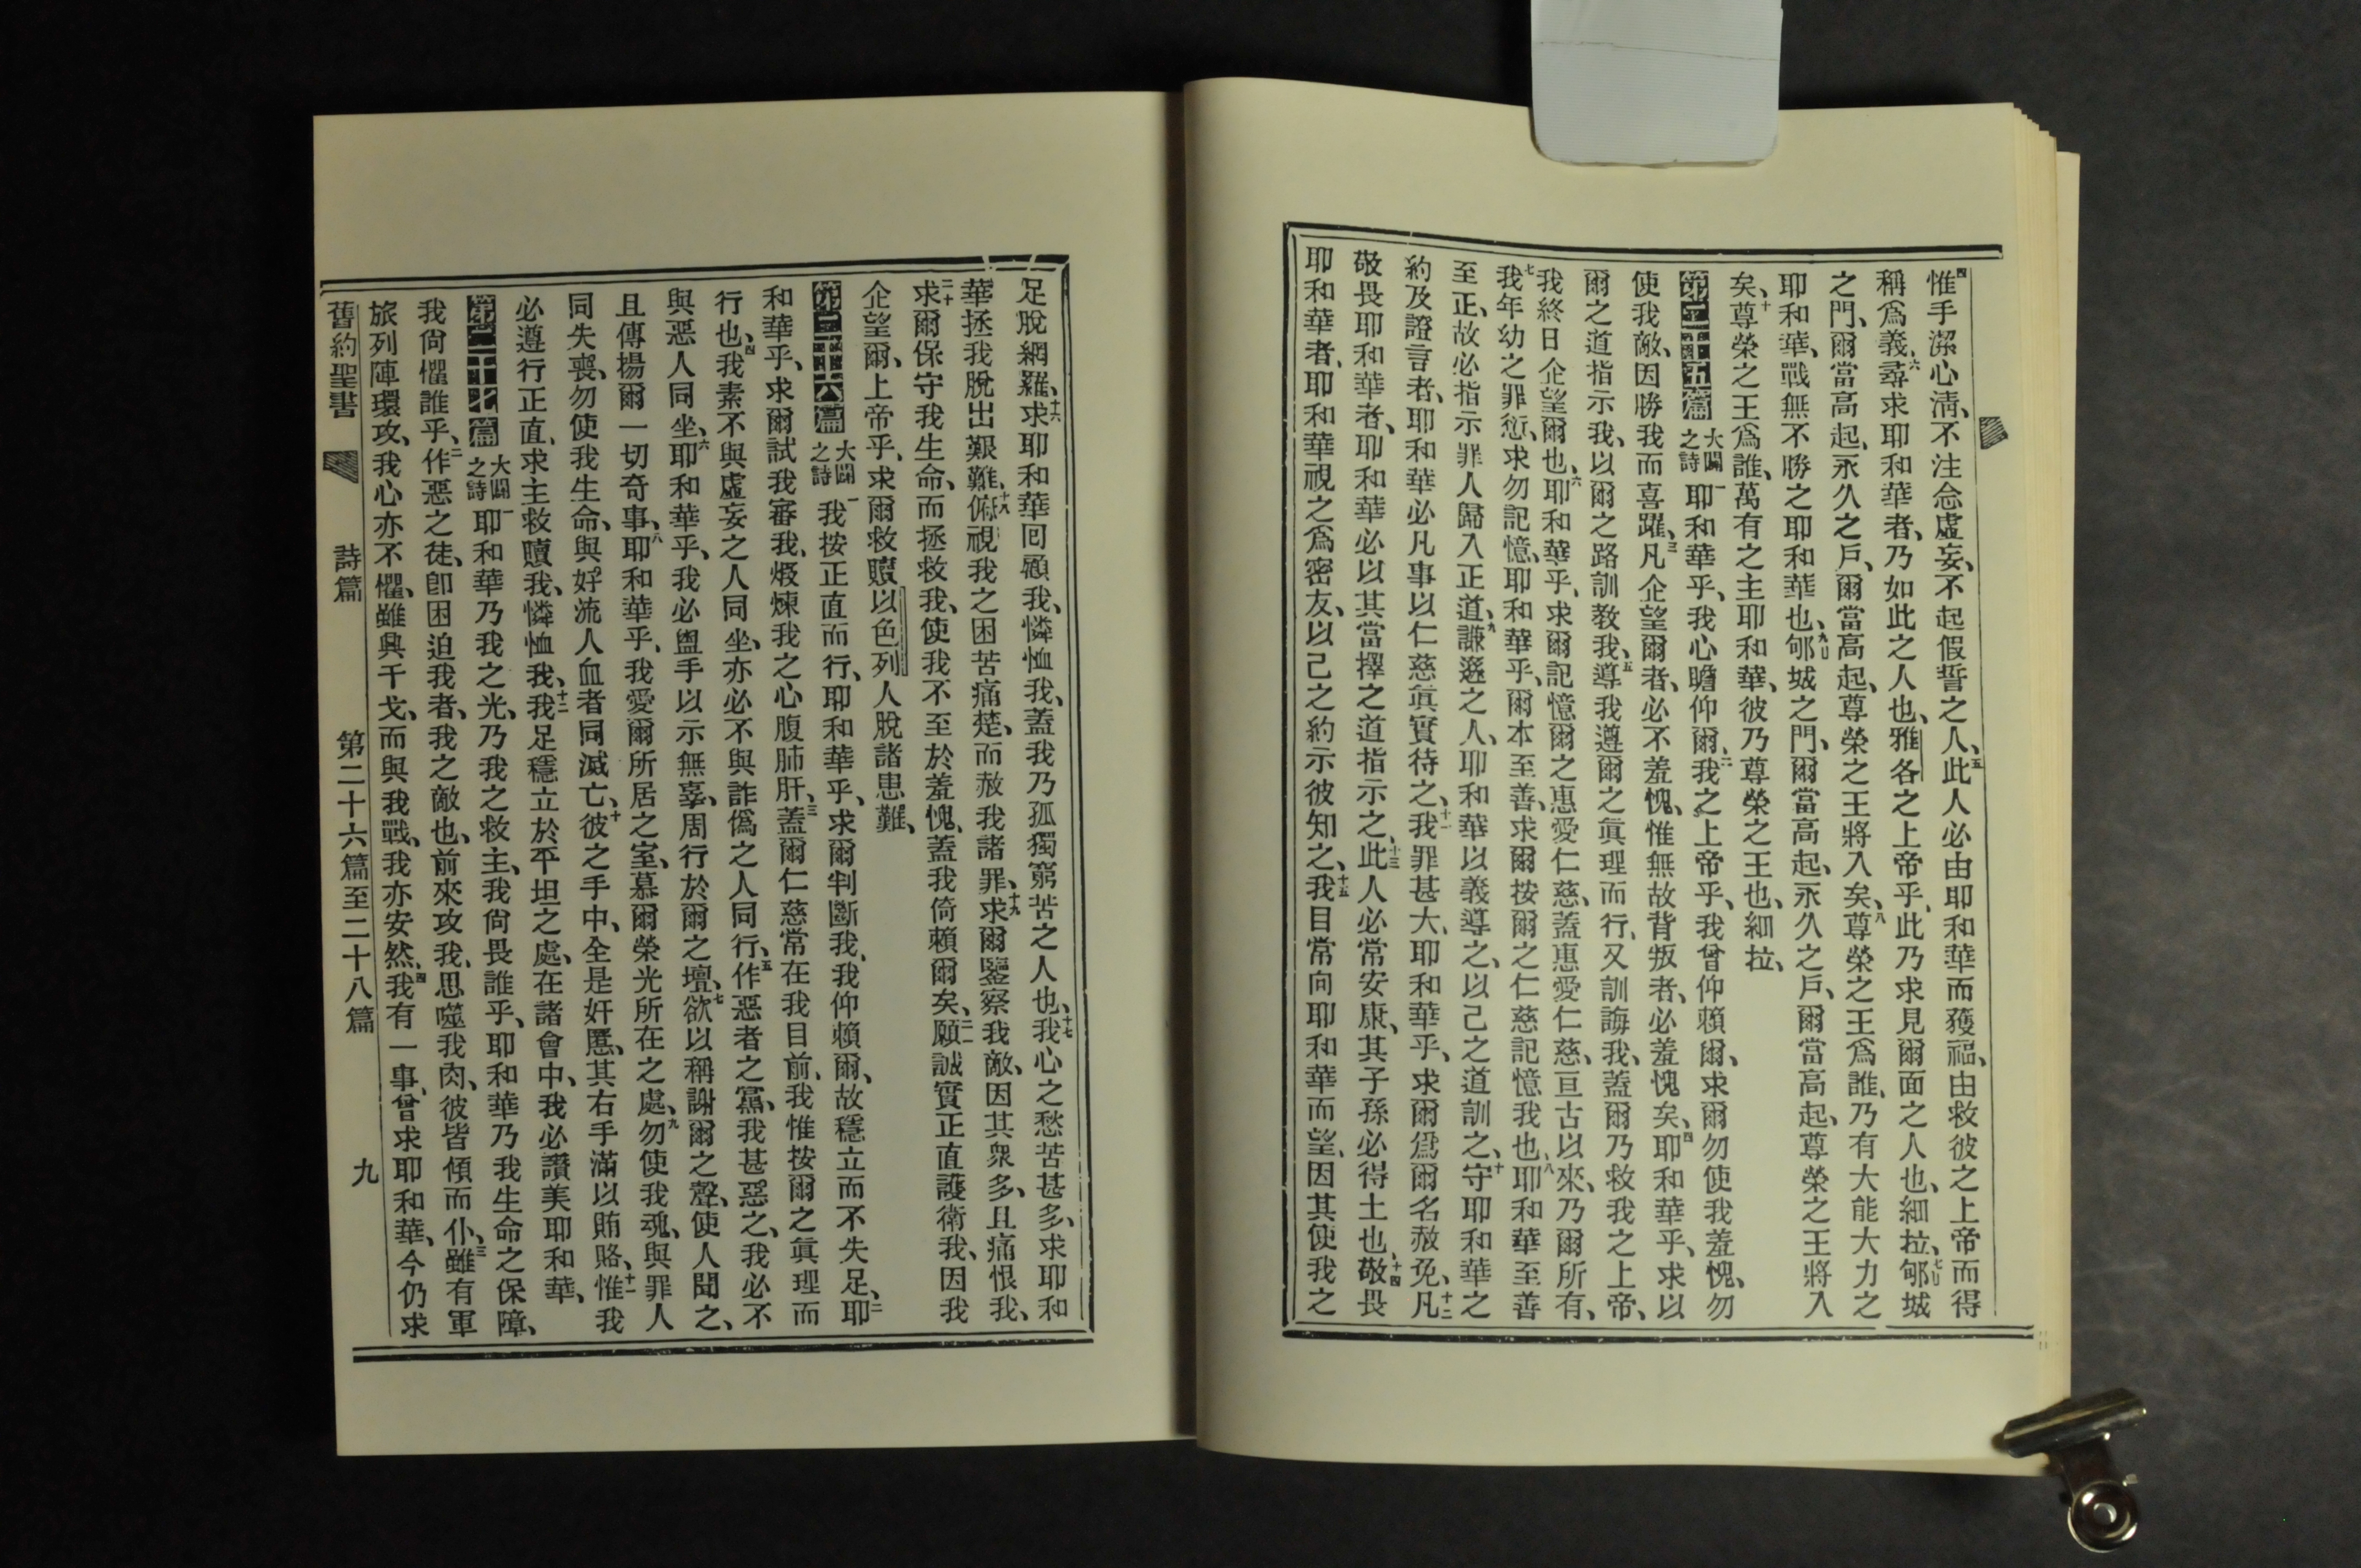 四惟手潔心淸、不注念虛妄、不起假誓之人、五此人必由耶和華而獲福、由救彼之上帝而得
稱爲義、六尋求耶和華者、乃如此之人也、雅各之上帝乎、此乃求見爾面之人也、細拉、七郇城
之門、爾當高起、永久之戶、爾當高起、尊榮之王將入矣、八尊榮之王爲誰、乃有大能大力之
耶和華、戰無不勝之耶和華也、九郇城之門、爾當高起、永久之戶、爾當高起、尊榮之王將入
矣、十尊榮之王爲誰、萬有之主耶和華、彼乃尊榮之王也、細拉、
第二十五篇 大闢之詩 一耶和華乎、我心瞻仰爾、二我之上帝乎、我曾仰賴爾、求爾勿使我羞愧、勿
使我敵、因勝我而喜躍、三凡企望爾者、必不羞愧、惟無故背叛者、必羞愧矣、四耶和華乎、求以
爾之道指示我、以爾之路訓敎我、五導我遵爾之眞理而行、又訓誨我、蓋爾乃救我之上帝、
我終日企望爾也、六耶和華乎、求爾記憶爾之惠愛仁慈、蓋惠愛仁慈、亘古以來、乃爾所有、
七我年幼之罪愆、求勿記憶、耶和華乎、爾本至善、求爾按爾之仁慈記憶我也、八耶和華至善
至正、故必指示罪人歸入正道、九謙遜之人、耶和華以義導之、以己之道訓之、十守耶和華之
約及證言者、耶和華必凡事以仁慈眞實待之、十一我罪甚大、耶和華乎、求爾爲爾名赦免、十二凡
敬畏耶和華者、耶和華必以其當擇之道指示之、十三此人必常安康、其子孫必得土也、十四敬畏
耶和華者、耶和華視之爲密友、以己之約示彼知之、十五我目常向耶和華而望、因其使我之
足脫網羅、十六求耶和華回顧我、憐恤我、蓋我乃孤獨窮苦之人也、十七我心之愁苦甚多、求耶和
華拯我脫出艱難、十八俯視我之困苦痛楚、而赦我諸罪、十九求爾鑒察我敵、因其衆多、且痛恨我、
二十求爾保守我生命、而拯救我、使我不至於羞愧、蓋我倚賴爾矣、二一願誠實正直護衛我、因我
企望爾、上帝乎、求爾救贖以色列人脫諸患難、
第二十六篇 大闢之詩 一我按正直而行、耶和華乎、求爾判斷我、我仰賴爾、故穩立而不失足、二耶
和華乎、求爾試我審我、煆煉我之心腹肺肝、三蓋爾仁慈常在我目前、我惟按爾之眞理而
行也、四我素不與虛妄之人同坐、亦必不與詐僞之人同行、五作惡者之黨、我甚惡之、我必不
與惡人同坐、六耶和華乎、我必盥手以示無辜、周行於爾之壇、七欲以稱謝爾之聲、使人聞之、
且傳揚爾一切奇事、八耶和華乎、我愛爾所居之室、慕爾榮光所在之處、九勿使我魂、與罪人
同失喪、勿使我生命、與好流人血者同滅亡、十彼之手中、全是奸慝、其右手滿以賄賂、十一惟我
必遵行正直、求主救贖我、憐恤我、十二我足穩立於平坦之處、在諸會中、我必讚美耶和華、
第二十七篇 大闢之詩 一耶和華乃我之光、乃我之救主、我尙畏誰乎、耶和華乃我生命之保障、
我尙懼誰乎、二作惡之徒、卽困迫我者、我之敵也、前來攻我、思噬我肉、彼皆傾而仆、三雖有軍
旅列陣環攻、我心亦不懼、雖興干戈、而與我戰、我亦安然、四我有一事、曾求耶和華、今仍求
舊約聖書 詩篇 第二十六篇至二十八篇 九